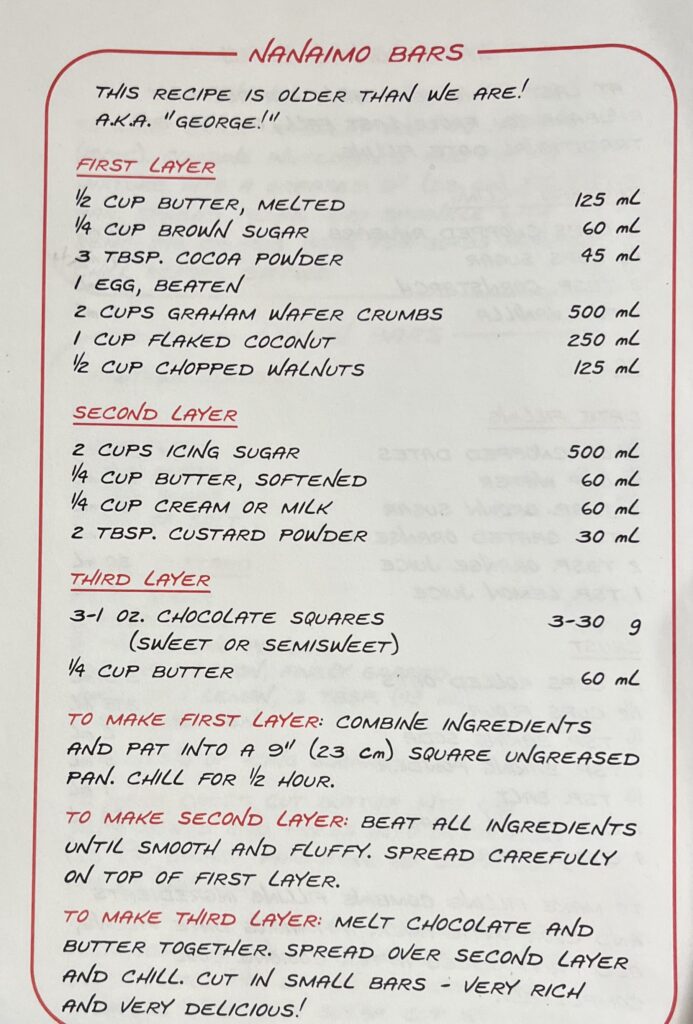 NANAIMO BARS
THIS RECIPE IS OLDER THAN WE ARE!
A.K.A. "GEORGE!"
FIRST LAYER
½ CUP BUTTER, MELTED 125 mL
¼ CUP BROWN SUGAR 60 mL
3 TBSP. COCOA POWDER 45 mL
1 EGG, BEATEN
2 CUPS GRAHAM WAFER CRUMBS 500 mL
1 CUP FLAKED COCONUT 250 mL
½ CUP CHOPPED WALNUTS 125 mL
SECOND LAYER
2 CUPS ICING SUGAR 500 mL
¼ CUP BUTTER, SOFTENED 60 mL
¼ CUP CREAM OR MILK 60 mL
2 TBSP. CUSTARD POWDER 30 mL
THIRD LAYER
3-1 OZ. CHOCOLATE SQUARES 3-30 g
(SWEET OR SEMISWEET)
¼ CUP BUTTER 60 mL
TO MAKE FIRST LAYER: COMBINE INGREDIENTS
AND PAT INTO A 9" (23 cm) SQUARE UNGREASED
PAN. CHILL FOR ½ HOUR.
TO MAKE SECOND LAYER: BEAT ALL INGREDIENTS
UNTIL SMOOTH AND FLUFFY. SPREAD CAREFULLY
ON TOP OF FIRST LAYER.
TO MAKE THIRD LAYER: MELT CHOCOLATE AND
BUTTER TOGETHER. SPREAD OVER SECOND LAYER
AND CHILL. CUT IN SMALL BARS - VERY RICH
AND VERY DELICIOUS!